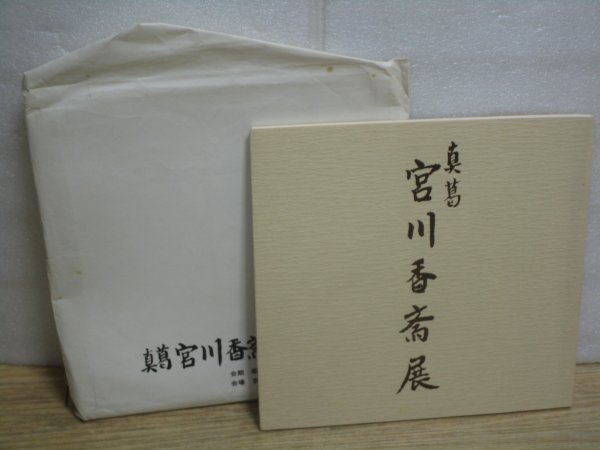 真葛
宮川香斎展
真葛宮川香斎
会期
会場